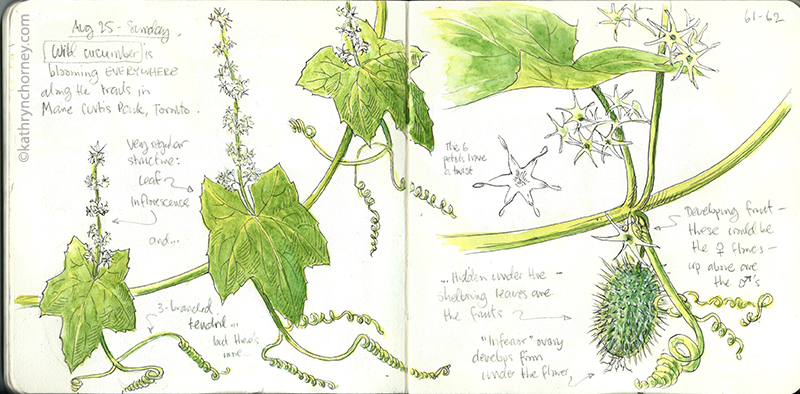 ©kathrynchorney.com
Aug 25 - Sunday.
Wild cucumber is
blooming EVERYWHERE
along the trails in
Marie Curtis Park, Toronto.
Very regular
structure:
Leaf
inflorescence
and...
3-branched
tendril...
but there's
more...
61-62
The 6
petals have
a twist
Developing fruit -
these would be
the ♀ flowers -
up above are
the ♂'s
...Hidden under the -
sheltering leaves are
the fruits
"Inferior" ovary
develops from
under the flower